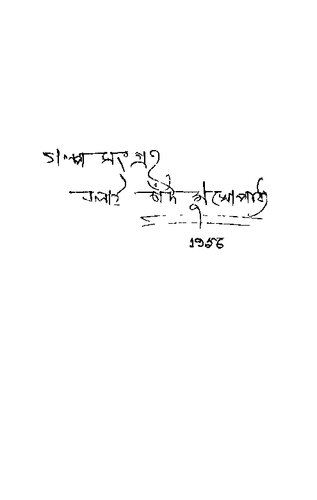 গল্প সংগ্রহ
বলাই চাঁদ মুখোপাধ্যায়
1956